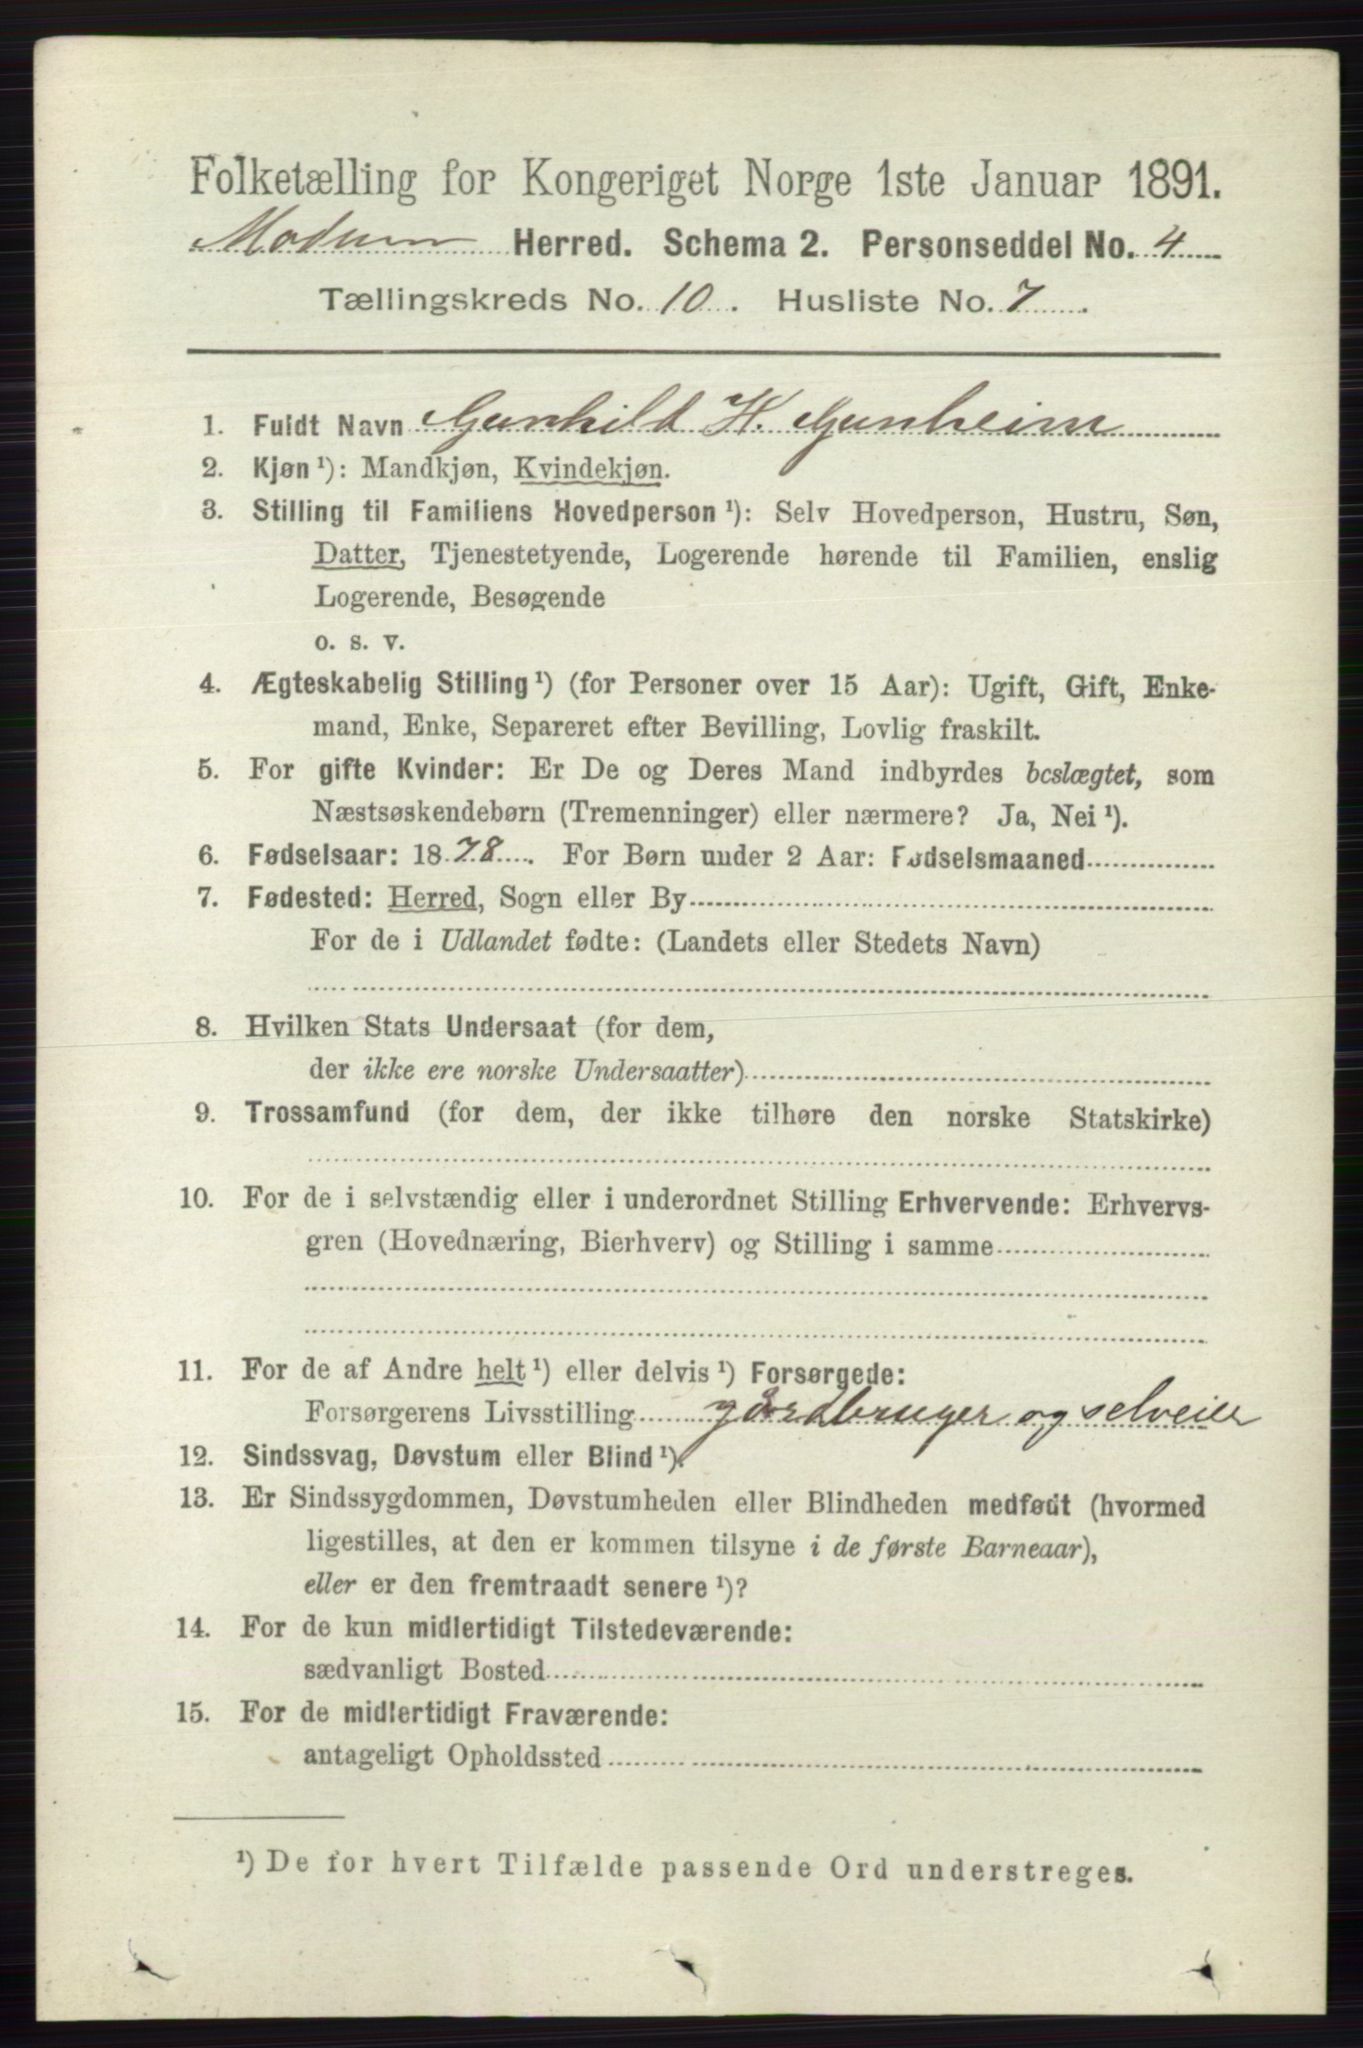 Folketælling for Kongeriget Norge 1ste Januar 1891.
Modum Herred. Schema 2. Personseddel No. 4
Tællingskreds No. 10. Husliste No. 7.
1. Fuldt Navn Gunhild H. Gunheim
2. Kjøn ¹): Mandkjøn, Kvindekjøn.
3. Stilling til Familiens Hovedperson ¹): Selv Hovedperson, Hustru, Søn,
Datter, Tjenestetyende, Logerende hørende til Familien, enslig
Logerende, Besøgende
o. s. v.
4. Ægteskabelig Stilling ¹) (for Personer over 15 Aar): Ugift, Gift, Enke-
mand, Enke, Separeret efter Bevilling, Lovlig fraskilt.
5. For gifte Kvinder: Er De og Deres Mand indbyrdes beslægtet, som
Næstsøskendebørn (Tremenninger) eller nærmere? Ja, Nei ¹).
6. Fødselsaar: 1878. For Børn under 2 Aar: Fødselsmaaned
7. Fødested: Herred, Sogn eller By
For de i Udlandet fødte: (Landets eller Stedets Navn)
8. Hvilken Stats Undersaat (for dem,
der ikke ere norske Undersaatter)
9. Trossamfund (for dem, der ikke tilhøre den norske Statskirke)
10. For de i selvstændig eller i underordnet Stilling Erhvervende: Erhvervs-
gren (Hovednæring, Bierhverv) og Stilling i samme
11. For de af Andre helt ¹) eller delvis ¹) Forsørgede:
Forsørgerens Livsstilling gårdbruger og selveier
12. Sindssvag, Døvstum eller Blind ¹).
13. Er Sindssygdommen, Døvstumheden eller Blindheden medfødt (hvormed
ligestilles, at den er kommen tilsyne i de første Barneaar),
eller er den fremtraadt senere ¹)?
14. For de kun midlertidigt Tilstedeværende:
sædvanligt Bosted
15. For de midlertidigt Fraværende:
antageligt Opholdssted
¹) De for hvert Tilfælde passende Ord understreges.